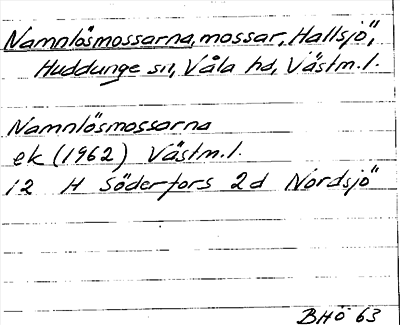 Namnlösmossarna, mossar, Hallsjö,
Huddunge sn, Våla hd, Västm.l.
Namnlösmossarna
ek (1962) Västm.l.
12 H Söderfors 2d Nordsjö
BHÖ 63